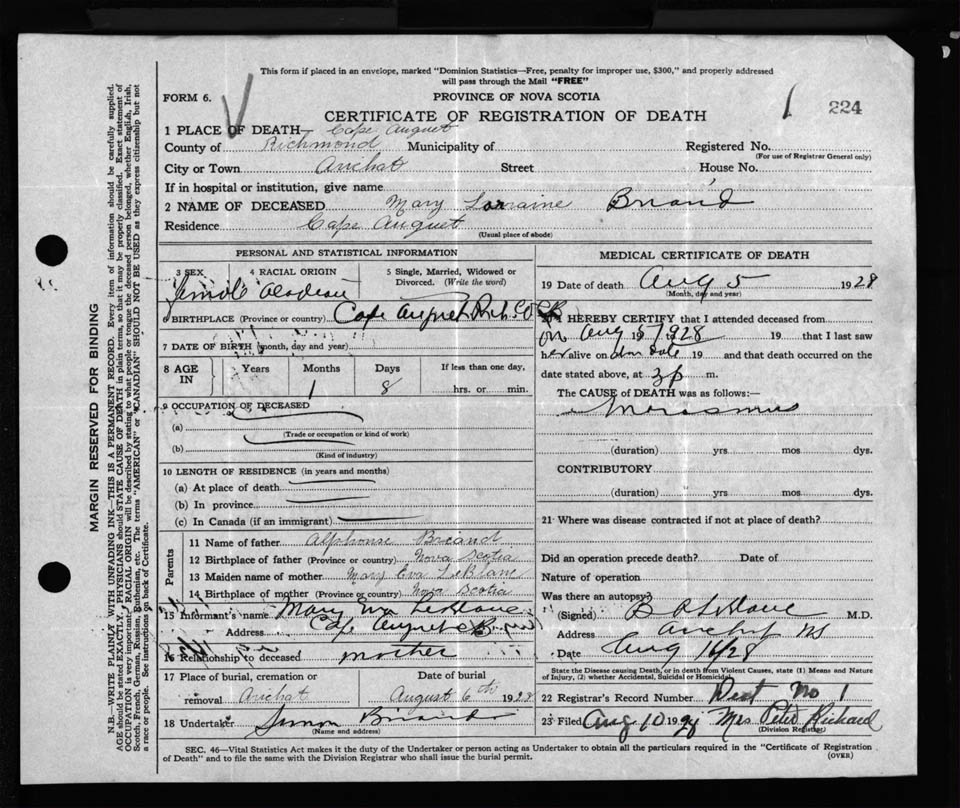 This form if placed in an envelope, marked "Dominion Statistics—Free, penalty for improper use, $300," and properly addressed
will pass through the Mail "FREE"
FORM 6.
PROVINCE OF NOVA SCOTIA
1 224
CERTIFICATE OF REGISTRATION OF DEATH
1 PLACE OF DEATH— Cape Auguet
County of Richmond Municipality of Registered No.
(For use of Registrar General only)
City or Town Arichat Street House No.
If in hospital or institution, give name
2 NAME OF DECEASED Mary Lorraine Briand
Residence Cape Auguet
(Usual place of abode)
PERSONAL AND STATISTICAL INFORMATION
3 SEX 4 RACIAL ORIGIN 5 Single, Married, Widowed or Divorced. (Write the word)
6 BIRTHPLACE (Province or country) Cape Auguet Rich. Co
7 DATE OF BIRTH (month, day and year)
8 AGE IN Years Months Days If less than one day,
1 8 hrs. or min.
9 OCCUPATION OF DECEASED
(a)
(Trade or occupation or kind of work)
(b)
(Kind of industry)
10 LENGTH OF RESIDENCE (in years and months)
(a) At place of death
(b) In province
(c) In Canada (if an immigrant)
Parents
11 Name of father Alphonse Briand
12 Birthplace of father (Province or country) Nova Scotia
13 Maiden name of mother Mary Eva LeBlanc
14 Birthplace of mother (Province or country) Nova Scotia
15 Informant's name Mary Eva LeBlanc
Address Cape Auguet
16 Relationship to deceased mother
17 Place of burial, cremation or removal Arichat
Date of burial August 6th 1928
18 Undertaker Simon Briand
(Name and address)
MEDICAL CERTIFICATE OF DEATH
19 Date of death Aug 5 1928
(Month, day and year)
20 I HEREBY CERTIFY that I attended deceased from
on Aug 5 1928 19 that I last saw
her alive on 19 and that death occurred on the
date stated above, at 3 p m.
The CAUSE of DEATH was as follows:
Marasmus
(duration) yrs mos dys.
CONTRIBUTORY
(duration) yrs. mos. dys.
21 Where was disease contracted if not at place of death?
Did an operation precede death? Date of
Nature of operation
Was there an autopsy?
(Signed) B A LeBlanc M.D.
Address Arichat NS
Date Aug 16/28
State the Disease causing Death, or in death from Violent Causes, state (1) Means and Nature
of Injury, (2) whether Accidental, Suicidal or Homicidal.
22 Registrar's Record Number Dist No 1
23 Filed Aug 10 1928 Mrs Peter Richard
(Division Registrar)
SEC. 46—Vital Statistics Act makes it the duty of the Undertaker or person acting as Undertaker to obtain all the particulars required in the "Certificate of Registration
of Death" and to file the same with the Division Registrar who shall issue the burial permit.
(OVER)
MARGIN RESERVED FOR BINDING
N.B.—WRITE PLAINLY WITH UNFADING INK—THIS IS A PERMANENT RECORD. Every item of information should be carefully supplied.
AGE should be stated EXACTLY. PHYSICIANS should STATE CAUSE OF DEATH in plain terms, so that it may be properly classified. Exact statement of
OCCUPATION is very important. RACIAL ORIGIN will be described by stating to what people or tongue the deceased person belonged, whether English, Irish,
Scotch, French, German, Russian, Ruthenian, etc. The terms "AMERICAN" or "CANADIAN" SHOULD NOT BE USED as they express citizenship but not
a race or people. See instructions on back of Certificate.